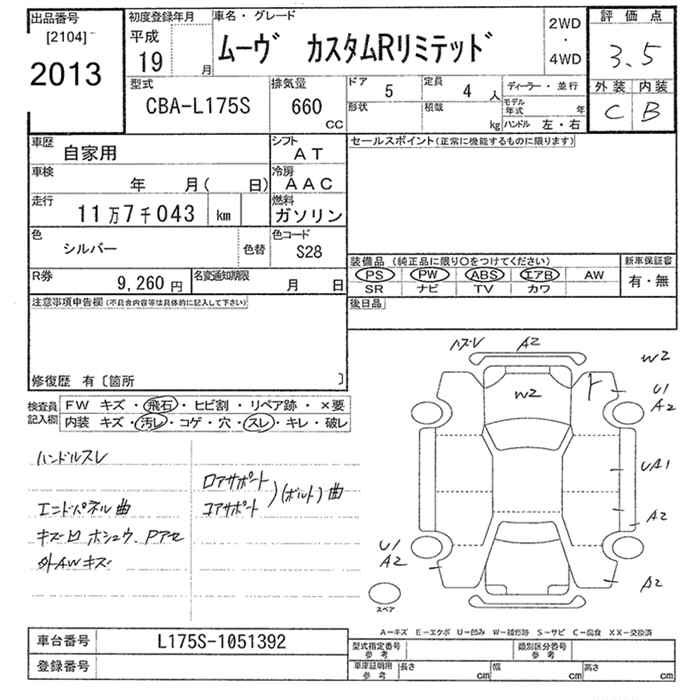 出品番号
[2104]
2013
初度登録年月
平成
19 月
車名・グレード
ムーヴ カスタムRリミテッド
2WD
・
4WD
評価点
3.5
外装 内装
C B
型式
CBA-L175S
排気量
660
CC
ドア 5
定員 4 人
形状
積載 kg
ディーラー・並行
モデル年式 年
ハンドル 左・右
車歴
自家用
シフト
AT
セールスポイント(正常に機能するものに限ります)
車検
年 月( 日)
冷房
AAC
走行
11万7千043 km
燃料
ガソリン
色
シルバー
色替
色コード
S28
装備品 (純正品に限り○をつけてください)
新車保証書
PS PW ABS エアB AW
有・無
SR ナビ TV カワ
R券
9,260 円
名変通知期限
月 日
後日品
注意事項申告欄(不具合内容等は具体的に記入して下さい)
修復歴 有〔箇所 〕
検査員
記入欄
FW キズ・飛石・ヒビ割・リペア跡・×要
内装 キズ・汚レ・コゲ・穴・スレ・キレ・破レ
ハズレ A2
W2
W2
U1
A2
UA1
A2
U1
A2
A2
ハンドルスレ
ロアサポート
コアサポート
)(ボルト)曲
エンドパネル曲
キズ凹 ホシュウ、Pアセ
外AWキズ
スペア
A―キズ E―エクボ U―凹み W―補修跡 S―サビ C―腐食 XX―交換済
車台番号
L175S-1051392
登録番号
型式指定番号
参考
類別区分番号
参考
車庫証明用
参考
長さ cm
幅 cm
高さ cm